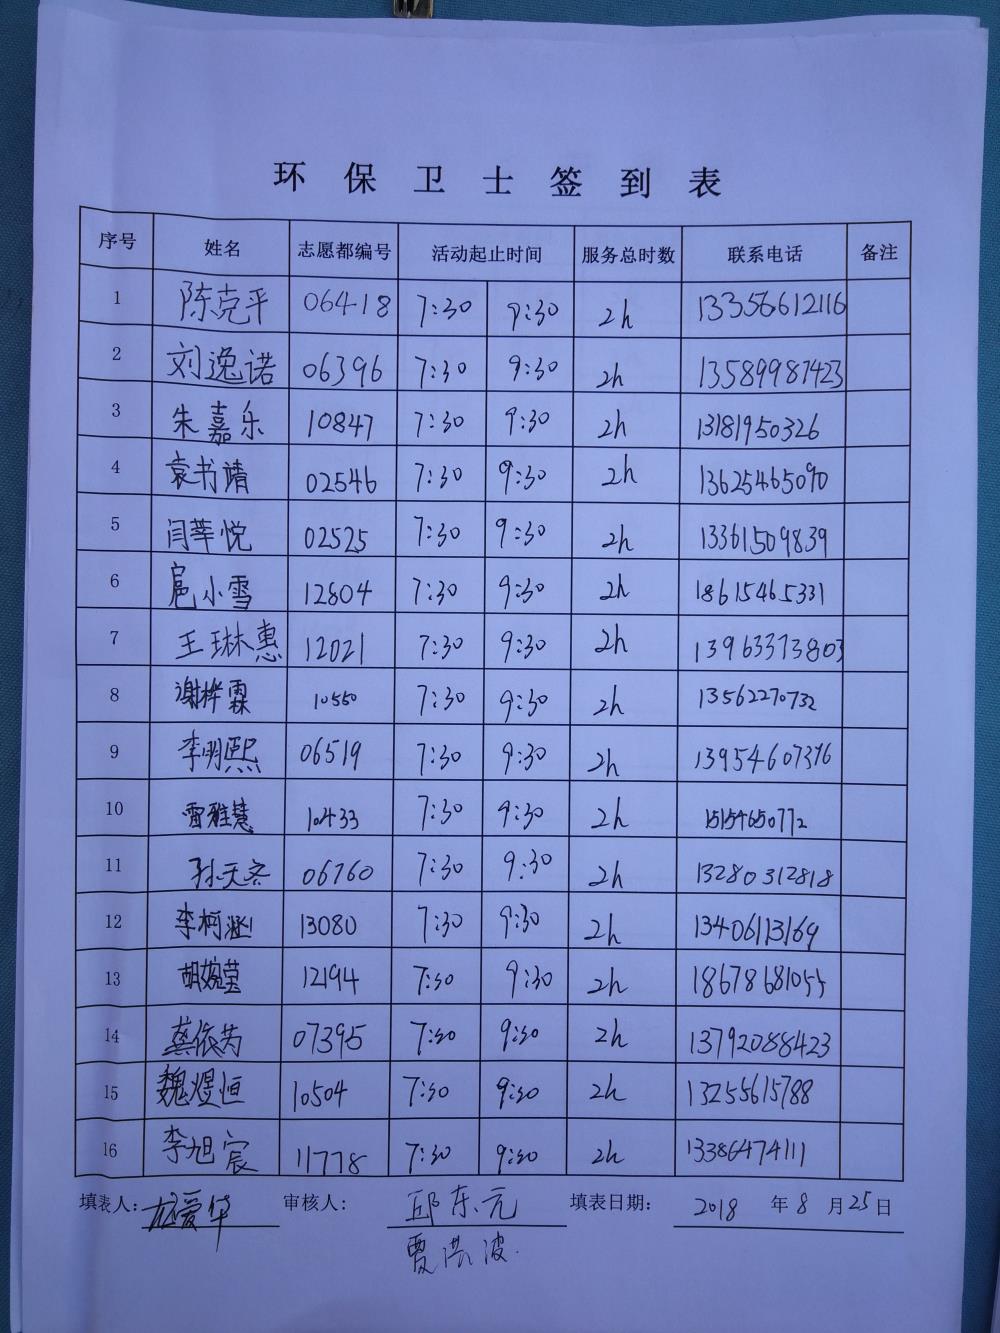 环保卫士签到表
序号 姓名 志愿都编号 活动起止时间 服务总时数 联系电话 备注
1 陈克平 06418 7:30 9:30 2h 13356612116
2 刘逸诺 06396 7:30 9:30 2h 13589987423
3 朱嘉乐 10847 7:30 9:30 2h 13181950326
4 袁书靖 02546 7:30 9:30 2h 13625465090
5 闫莘悦 02525 7:30 9:30 2h 13361509839
6 扈小雪 12804 7:30 9:30 2h 18615465331
7 王琳惠 12021 7:30 9:30 2h 13963373803
8 谢桦霖 10550 7:30 9:30 2h 13562270732
9 李明熙 06519 7:30 9:30 2h 13954607376
10 雷雅慧 10433 7:30 9:30 2h 15154650772
11 孙天 06760 7:30 9:30 2h 13280312818
12 李柯涵 13080 7:30 9:30 2h 13406113169
13 胡婉莹 12194 7:30 9:30 2h 18678681055
14 龚依芮 07395 7:30 9:30 2h 13792088423
15 魏煜恒 10504 7:30 9:30 2h 13255615788
16 李旭宸 11778 7:30 9:30 2h 13386474111
填表人: 爱华 审核人: 邱东元 填表日期: 2018 年 8 月 25 日
贾洪波